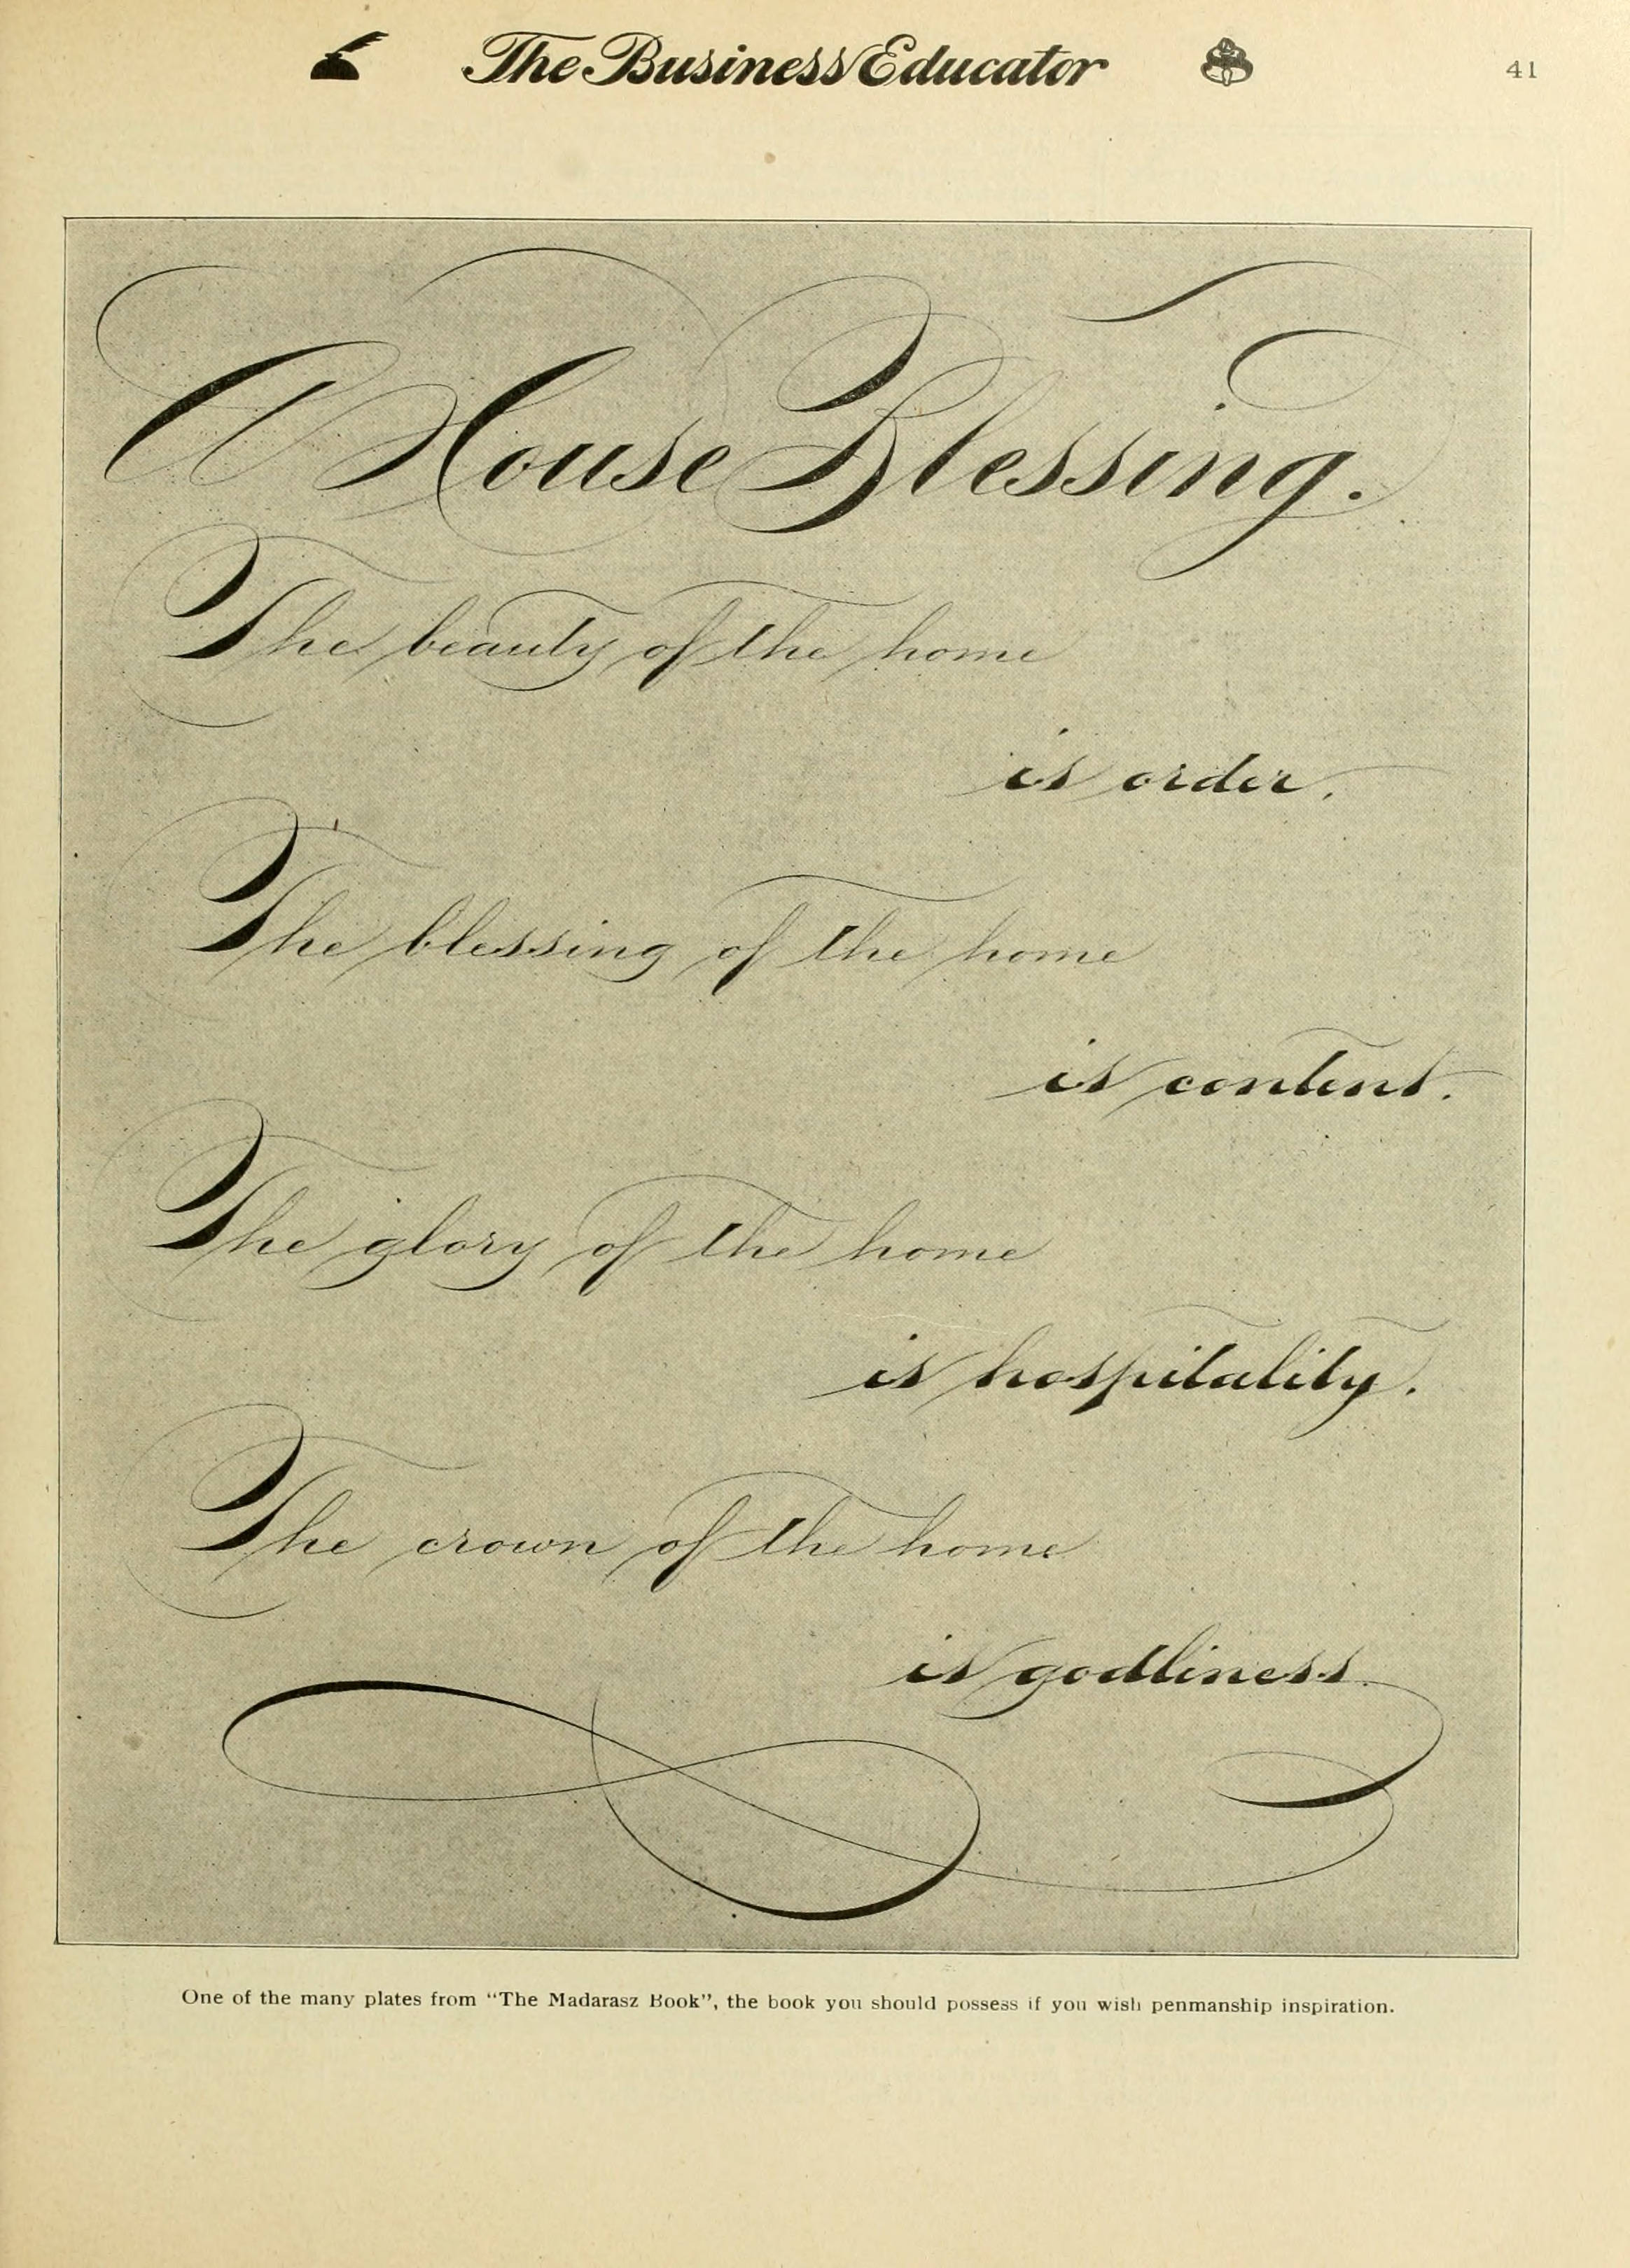 The Business Educator
41
A House Blessing.
The beauty of the home
is order.
The blessing of the home
is content.
The glory of the home
is hospitality.
The crown of the home
is godliness.
One of the many plates from "The Madarasz Book", the book you should possess if you wish penmanship inspiration.